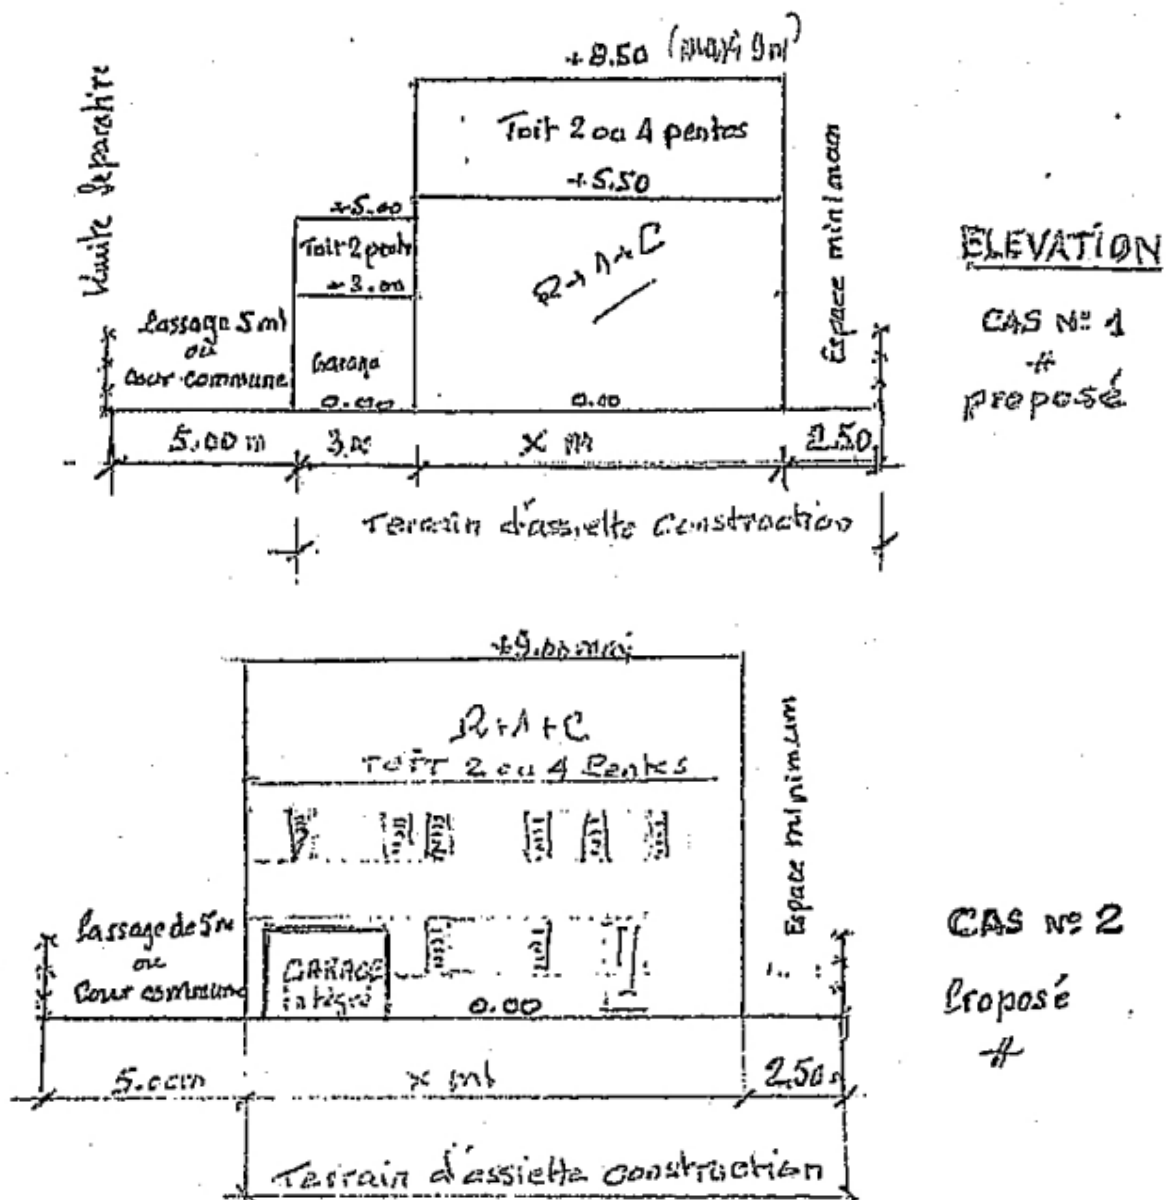 +8.50 (maxi 9m)
Toit 2 ou 4 pentes
+5.50
Limite Séparative
+5.00
Toit 2 pents
+3.00
R+1+C
Espace minimum
Passage 5 ml
où
Cour commune
Garage
0.00
0.00
5.00 m
3 m
x m
2.50
Terrain d'assiette construction
ELEVATION
CAS Nº 1
proposé
+9.00 maxi
R+1+C
TOIT 2 ou 4 Pentes
Espace minimum
Passage de 5m
ou
Cour commune
GARAGE
intégré
0.00
5.00m
x ml
2.50
Terrain d'assiette construction
CAS Nº 2
Proposé